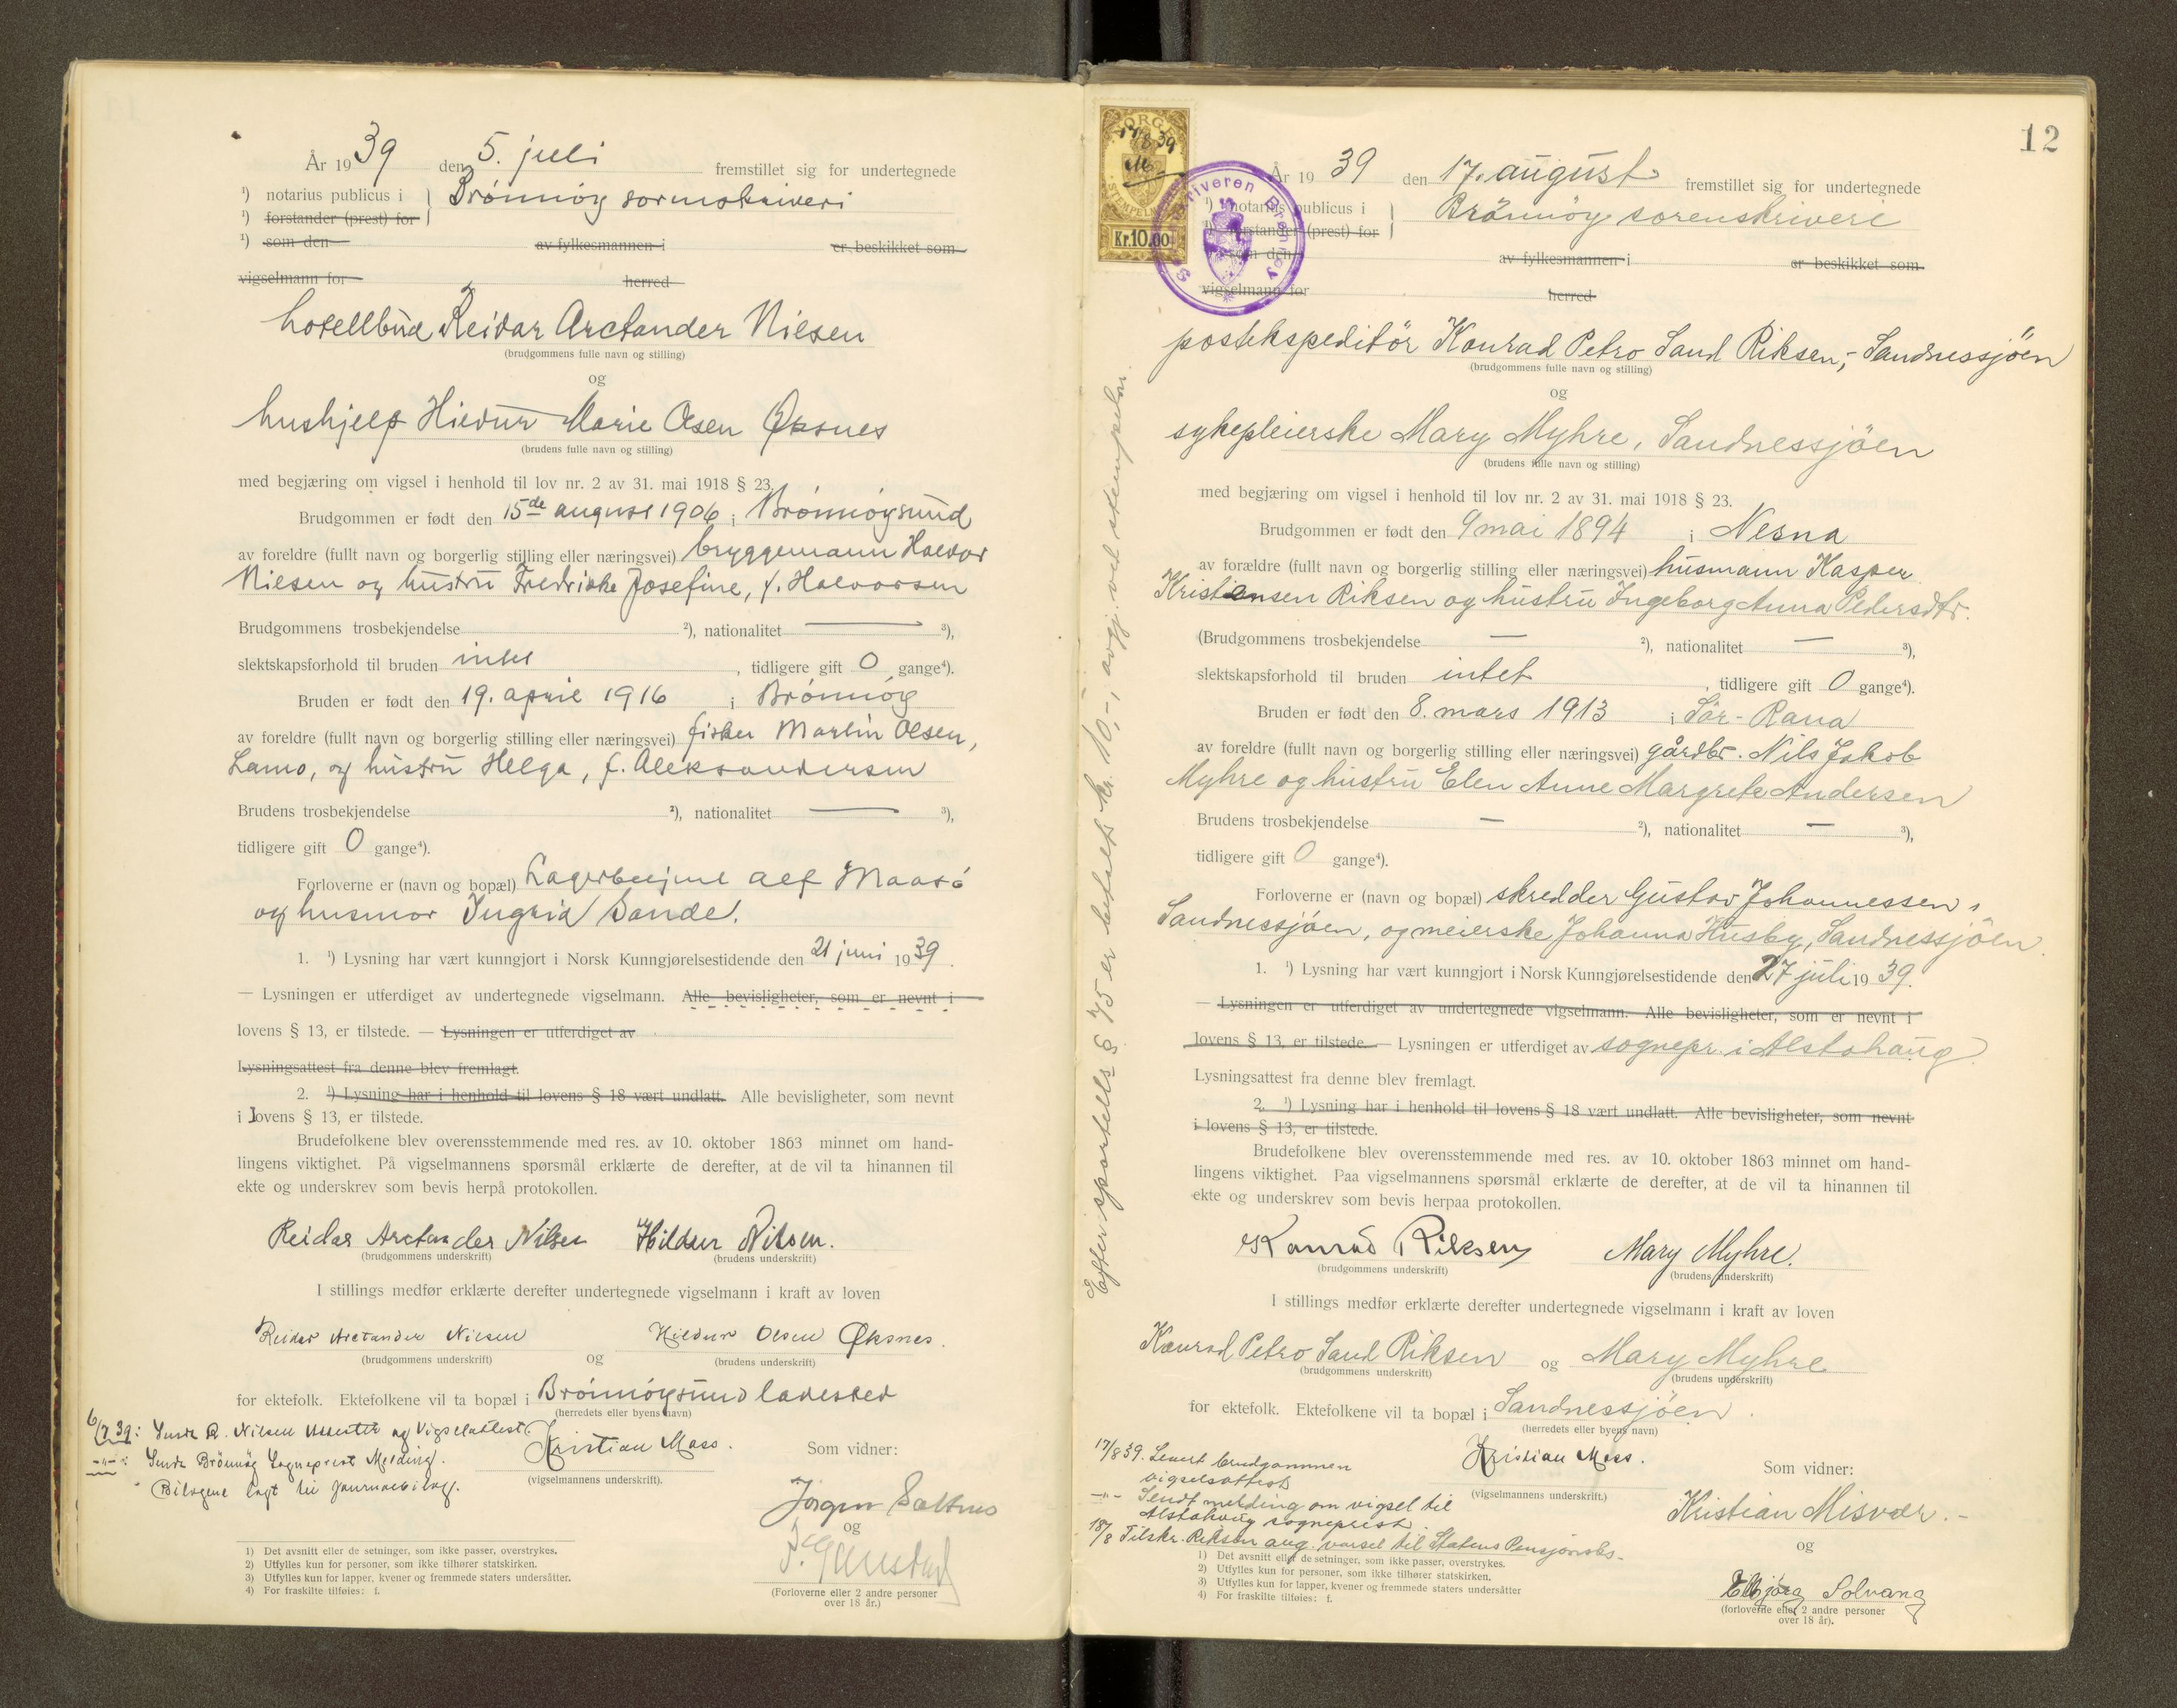 År 1939 den 5. juli fremstillet sig for undertegnede
¹) notarius publicus i } Brönnöy sorenskriveri
¹) forstander (prest) for
¹) som den av fylkesmannen i er beskikket som
vigselmann for herred
hotellbud Reidar Arctander Nilsen
(brudgommens fulle navn og stilling)
og
hushjelp Hildur Marie Olsen Øksnes
(brudens fulle navn og stilling)
med begjæring om vigsel i henhold til lov nr. 2 av 31. mai 1918 § 23.
Brudgommen er født den 15de august 1906 i Brönnöysund
av foreldre (fullt navn og borgerlig stilling eller næringsvei) bryggemann Halvor
Nilsen og hustru Fredrikke Josefine, f. Halvorsen
Brudgommens trosbekjendelse ²), nationalitet — ³),
slektskapsforhold til bruden intet, tidligere gift 0 gange⁴).
Bruden er født den 19. april 1916 i Brönnöy
av foreldre (fullt navn og borgerlig stilling eller næringsvei) fisker Martin Olsen,
Lamo, og hustru Helga, f. Aleksandersen
Brudens trosbekjendelse ²), nationalitet — ³),
tidligere gift 0 gange⁴).
Forloverne er (navn og bopæl) Lagerbetjent Alf Maasö
og husmor Ingrid Sande.
1. ¹) Lysning har vært kunngjort i Norsk Kunngjørelsestidende den 21 juni 1939.
— Lysningen er utferdiget av undertegnede vigselmann. Alle bevisligheter, som er nevnt i
lovens § 13, er tilstede. — Lysningen er utferdiget av
Lysningsattest fra denne blev fremlagt.
2. ¹) Lysning har i henhold til lovens § 18 vært undlatt. Alle bevisligheter, som nevnt
i lovens § 13, er tilstede.
Brudefolkene blev overensstemmende med res. av 10. oktober 1863 minnet om hand-
lingens viktighet. På vigselmannens spørsmål erklærte de derefter, at de vil ta hinannen til
ekte og underskrev som bevis herpå protokollen.
Reidar Arctander Nilsen Hildur Nilsen.
(brudgommens underskrift) (brudens underskrift)
I stillings medfør erklærte derefter undertegnede vigselmann i kraft av loven
Reidar Arctander Nilsen og Hildur Olsen Øksnes.
(brudgommens underskrift) (brudens underskrift)
for ektefolk. Ektefolkene vil ta bopæl i Brönnöysund ladested
(herredets eller byens navn)
6/7 39: Sendt R. Nilsen attester og Vigselattest.
-"-: Sendt Brönnöy Sogneprest Melding.
Bilagene lagt til journalbilag.
Kristian Moss.
(vigselmannens underskrift).
Som vidner:
Jørgen
og
(Forloverne eller 2 andre personer
over 18 år.)
1) Det avsnitt eller de setninger, som ikke passer, overstrykes.
2) Utfylles kun for personer, som ikke tilhører statskirken.
3) Utfylles kun for lapper, kvener og fremmede staters undersåtter.
4) For fraskilte tilføies: f.
12
NORGE
17/8 39
M.
STEMPELM
Kr.10.00
Sorenskriveren Brønnøy
År 1939 den 17. august fremstillet sig for undertegnede
¹) notarius publicus i } Brönnöy sorenskriveri
¹) forstander (prest) for
som den av fylkesmannen i er beskikket som
vigselmann for herred
postekspeditör Konrad Petro Sand Riksen,- Sandnessjöen
(brudgommens fulle navn og stilling)
og
sykepleierske Mary Myhre, Sandnessjöen
(brudens fulle navn og stilling)
med begjæring om vigsel i henhold til lov nr. 2 av 31. mai 1918 § 23.
Brudgommen er født den 9 mai 1894 i Nesna
av forældre (fullt navn og borgerlig stilling eller næringsvei) husmann Kasper
Kristiansen Riksen og hustru Ingeborg Anna Pedersdtr.
(Brudgommens trosbekjendelse — ²), nationalitet — ³),
slektskapsforhold til bruden intet, tidligere gift 0 gange⁴).
Bruden er født den 8. mars 1913 i Sör-Rana
av foreldre (fullt navn og borgerlig stilling eller næringsvei) gårdbr. Nils Jakob
Myhre og hustru Elen Anne Margrete Andersen
Brudens trosbekjendelse — ²), nationalitet — ³),
tidligere gift 0 gange⁴).
Forloverne er (navn og bopæl) skredder Gustav Johannessen,
Sandnessjöen, og meierske Johanna Husby, Sandnessjöen
1. ¹) Lysning har vært kunngjort i Norsk Kunngjørelsestidende den 27 juli 1939.
— Lysningen er utferdiget av undertegnede vigselmann. Alle bevisligheter, som er nevnt i
lovens § 13, er tilstede. — Lysningen er utferdiget av sognepr. i Alstahaug
Lysningsattest fra denne blev fremlagt.
2. ¹) Lysning har i henhold til lovens § 18 vært undlatt. Alle bevisligheter, som nevnt
i lovens § 13, er tilstede.
Brudefolkene blev overensstemmende med res. av 10. oktober 1863 minnet om hand-
lingens viktighet. Paa vigselmannens spørsmål erklærte de derefter, at de vil ta hinannen til
ekte og underskrev som bevis herpaa protokollen.
Konrad Riksen Mary Myhre.
(brudgommens underskrift) (brudens underskrift)
I stillings medfør erklærte derefter undertegnede vigselmann i kraft av loven
Konrad Petro Sand Riksen og Mary Myhre
(brudgommens underskrift) (brudens underskrift)
for ektefolk. Ektefolkene vil ta bopæl i Sandnessjöen.
(herredets eller byens navn)
17/8 39. Levert brudgommen
vigselsattest
-"- Sendt melding om vigsel til
Alstahaug sogneprest
18/8 Tilskr. Riksen ang. varsel til Statens Pensjonsks-
Kristian Moss.
(vigselmannens underskrift.)
Som vidner:
Kristian Misvær.-
og
Ellbjørg Solvang
(forloverne eller 2 andre personer
over 18 år).
1) Det avsnitt eller de setninger, som ikke passer, overstrykes.
2) Utfylles kun for personer, som ikke tilhører statskirken.
3) Utfylles kun for lapper, kvener og fremmede staters undersåtter
4) For fraskilte tilføies: f.
Efter sportells § 75 er betalt kr. 10,-, avgj. ved stempelm.